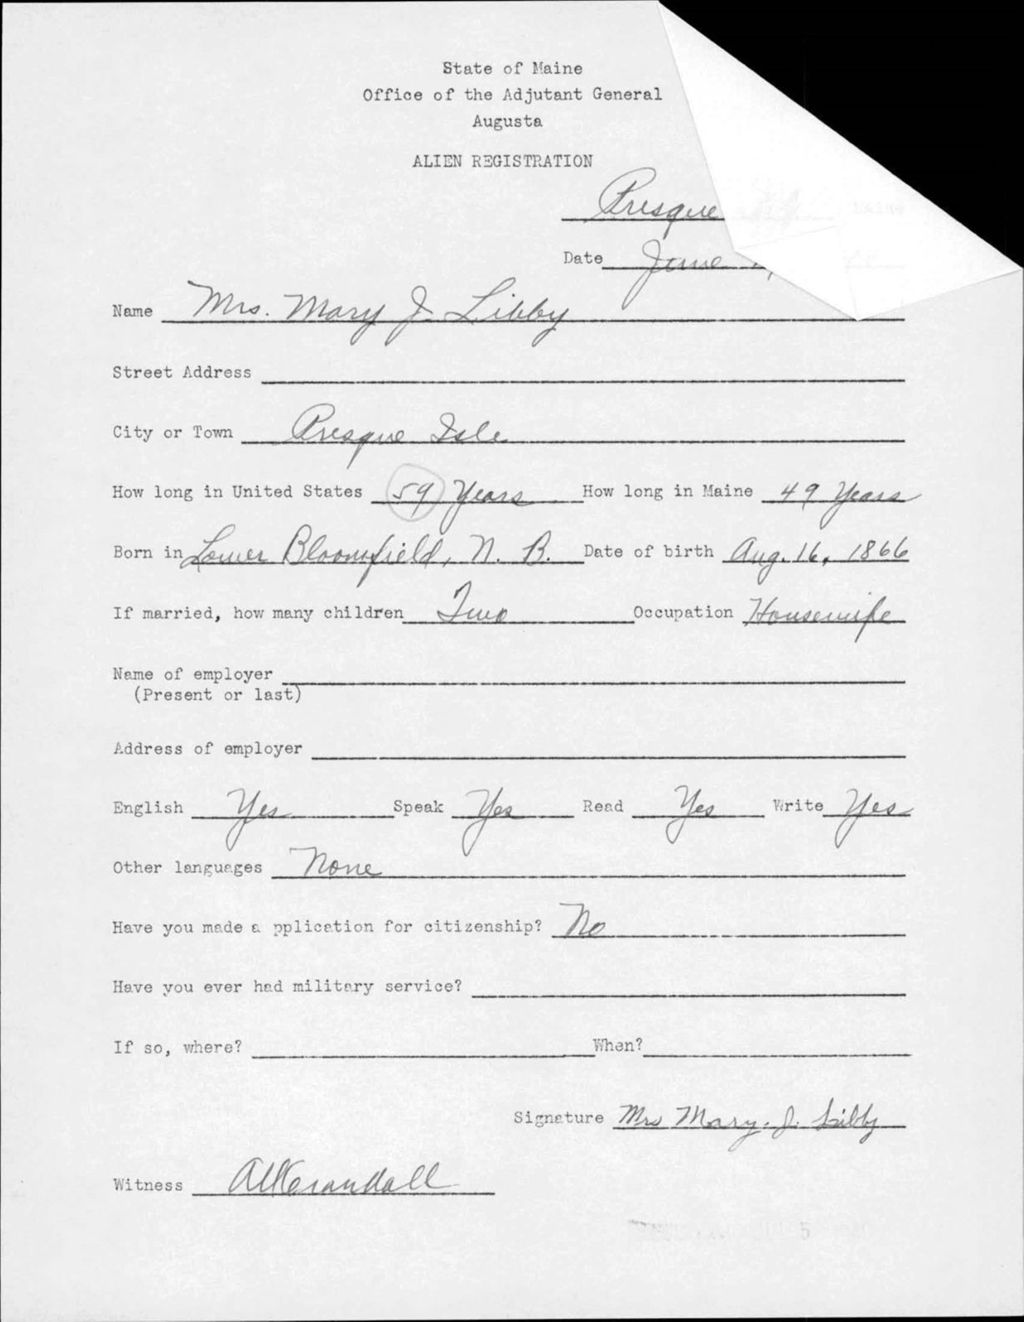 State of Maine
Office of the Adjutant General
Augusta
ALIEN REGISTRATION
Presque
Date June
Name Mrs. Mary J. Libby
Street Address
City or Town Presque Isle
How long in United States 59 Years How long in Maine 49 Years
Born in Lower Bloomfield, N. B. Date of birth Aug. 16, 1866
If married, how many children Two Occupation Housewife
Name of employer
(Present or last)
Address of employer
English Yes Speak Yes Read Yes Write Yes
Other languages None
Have you made a pplication for citizenship? No
Have you ever had military service?
If so, where? When?
Signature Mrs Mary. J. Libby
Witness Crandall